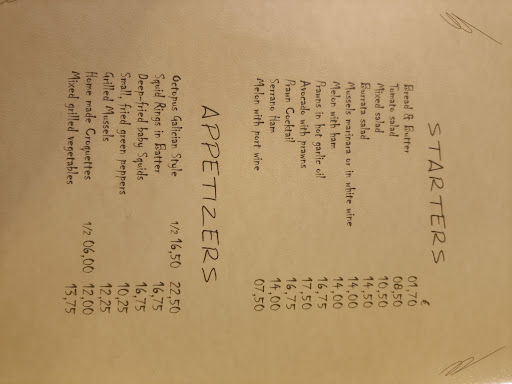 STARTERS
€
Bread & Butter 01,70
Tomato salad 08,50
Mixed salad 10,50
Burrata salad 14,50
Mussels marinara or in white wine 14,00
Melon with ham 14,00
Prawns in hot garlic oil 16,75
Avocado with prawns 17,50
Prawn Cocktail 16,75
Serrano Ham 14,00
Melon with port wine 07,50
APPETIZERS
Octopus Galician Style 1/2 16,50 22,50
Squid Rings in Batter 16,75
Deep-fried baby Squids 16,75
Small, fried green peppers 10,25
Grilled Mussels 12,25
Home made Croquettes 1/2 06,00 12,00
Mixed grilled vegetables 13,75